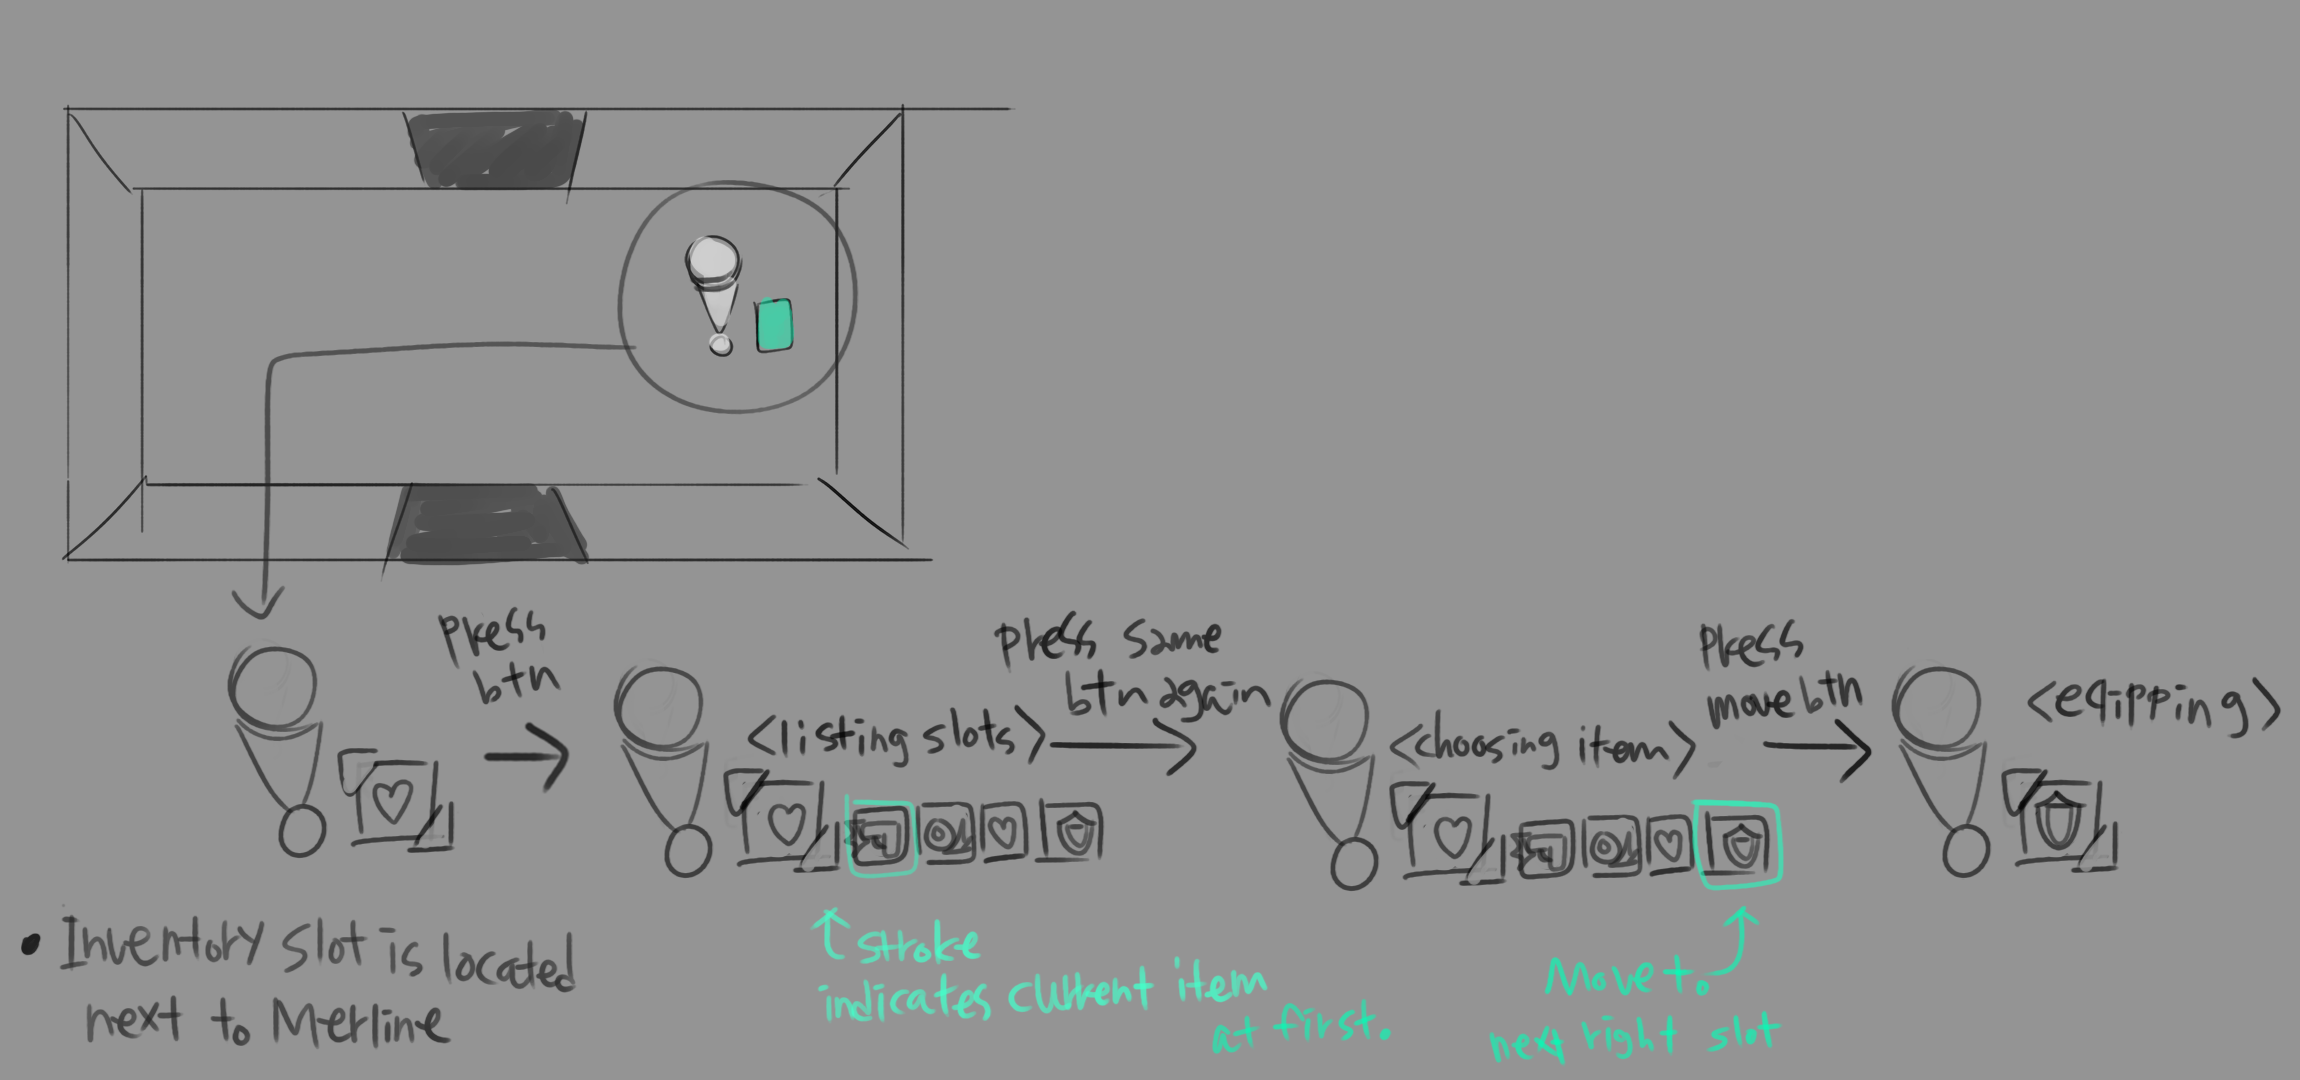 Press
btn
<listing slots>
press same
btn again
<choosing item>
Press
move btn
<eqipping>
• Inventory slot is located
next to Merline
stroke
indicates current item
at first.
Move to
next right slot